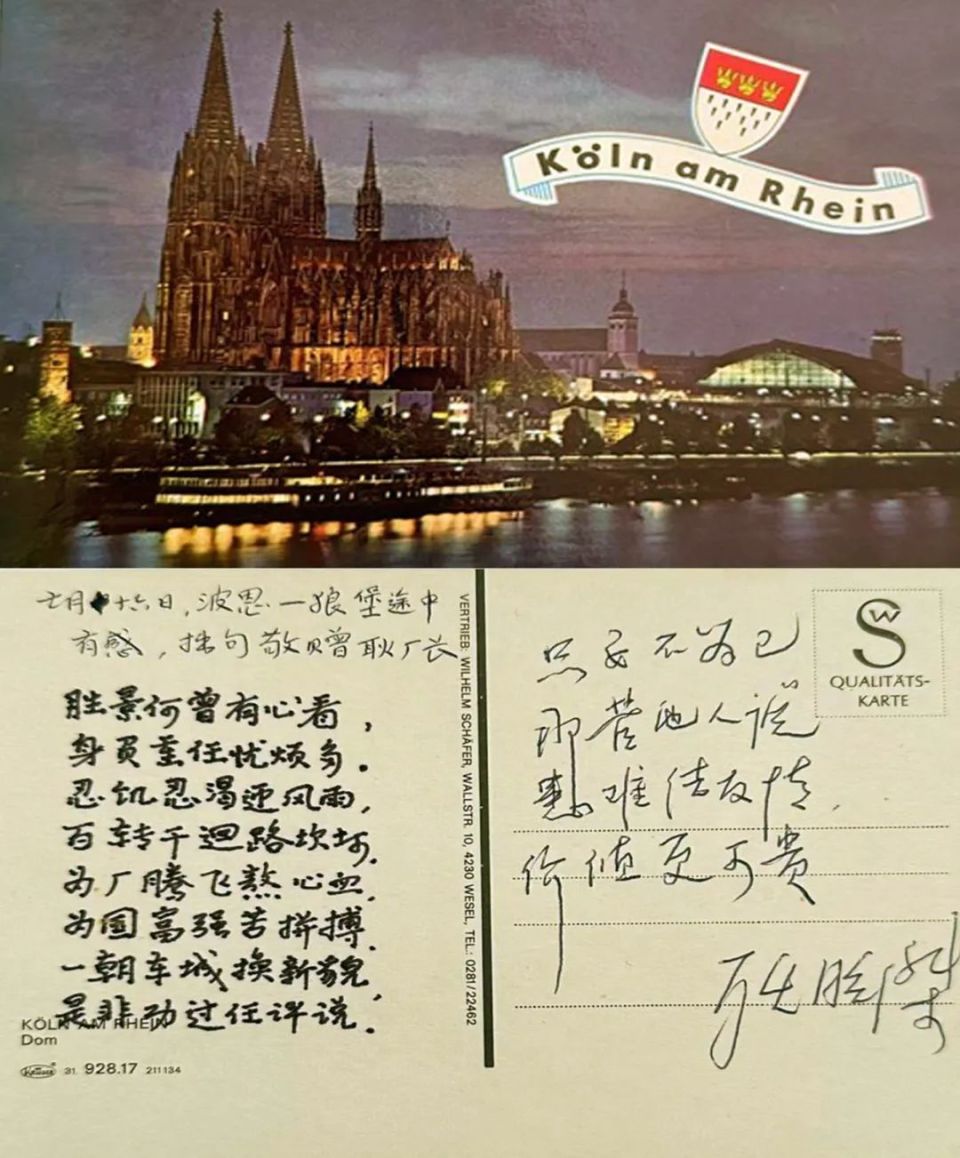 Köln am Rhein
七月十六日，波恩—狼堡途中
有感，拙句敬赠耿厂长
胜景何曾有心看，
身负重任忧烦多。
忍饥忍渴迎风雨，
百转千迴路坎坷。
为厂腾飞熬心血，
为国富强苦拼搏。
一朝车城换新貌，
是非功过任评说。
KÖLN AM RHEIN
Dom
Krüger 31. 928.17 211134
VERTRIEB: WILHELM SCHÄFER, WALLSTR. 10, 4230 WESEL, TEL.: 0281/22462
SW
QUALITÄTS-
KARTE
只要不为己
那管他人说
患难结友情，
价值更可贵